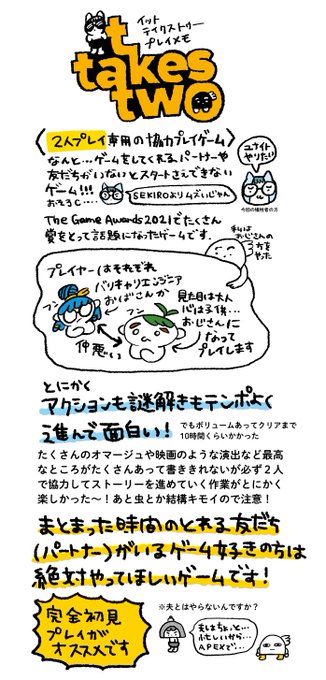 it
takes
two
イット
テイクストゥー
プレイメモ
〈2人プレイ専用の協力プレイゲーム〉
なんと…ゲームをしてくれるパートナーや
友だちがいないとスタートさえできない
ゲーム!!!
おそろC…
SEKIROよりムズいじゃん
ユナイト
やりたい
今回の犠牲者の方
The Game Awards2021でたくさん
賞をとって話題になったゲームです.
私はおじさんの
方を
やった
プレイヤーはそれぞれ
バリキャリエンジニア
おばさんか
フン
フン
仲悪い
見た目は大人
心は子供…
おじさんに
なって
プレイします
とにかく
アクションも謎解きもテンポよく
進んで面白い!
でもボリュームあってクリアまで
10時間くらいかかった
たくさんのオマージュや映画のような演出など最高
なところがたくさんあって書ききれないが必ず２人
で協力してストーリーを進めていく作業がとにかく
楽しかった〜！あと虫とか結構キモイので注意！
まとまった時間のとれる友だち
(パートナー)がいるゲーム好きの方は
絶対やってほしいゲームです!
完全初見
プレイが
オススメです
※夫とはやらないんですか？
夫はちょっと…
忙しいから…
APEXで…